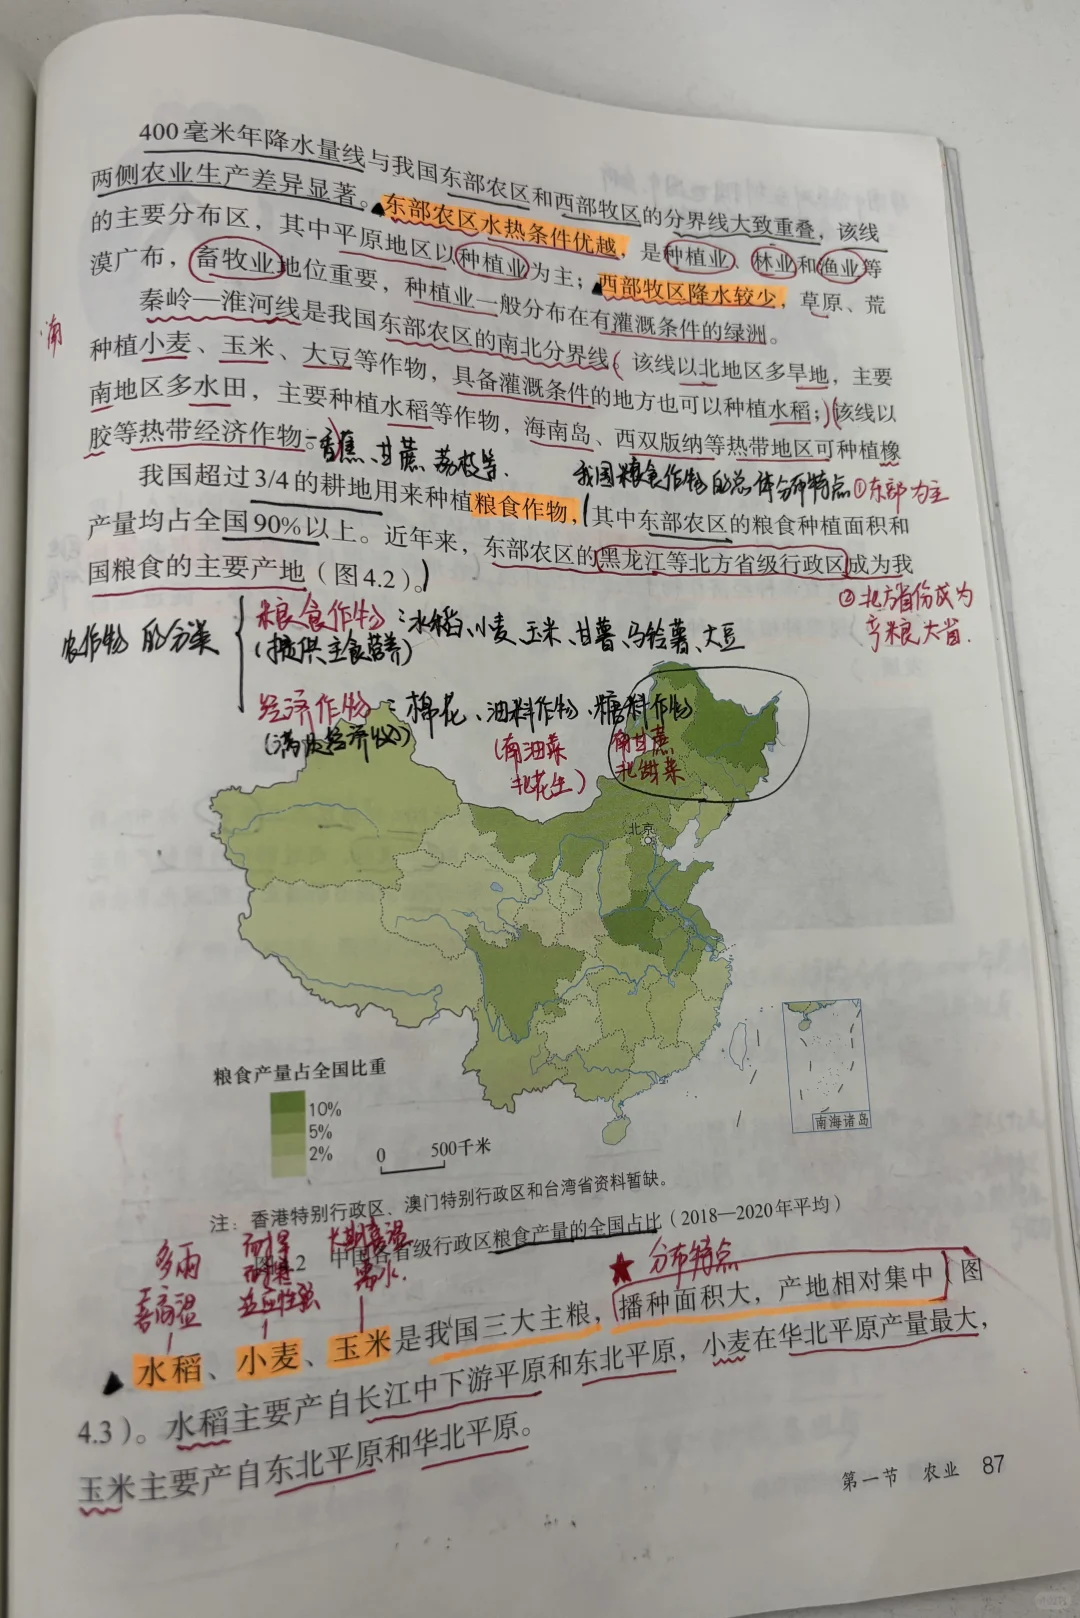 400毫米年降水量线与我国东部农区和西部牧区的分界线大致重叠，该线
两侧农业生产差异显著。东部农区水热条件优越，是种植业、林业和渔业等
的主要分布区，其中平原地区以种植业为主；西部牧区降水较少，草原、荒
漠广布，畜牧业地位重要，种植业一般分布在有灌溉条件的绿洲。
秦岭—淮河线是我国东部农区的南北分界线。该线以北地区多旱地，主要
种植小麦、玉米、大豆等作物，具备灌溉条件的地方也可以种植水稻；该线以
南地区多水田，主要种植水稻等作物，海南岛、西双版纳等热带地区可种植橡
胶等热带经济作物。
香蕉、甘蔗、荔枝等.
我国粮食作物的总体分布特点①东部为主
我国超过3/4的耕地用来种植粮食作物，其中东部农区的粮食种植面积和
产量均占全国90%以上。近年来，东部农区的黑龙江等北方省级行政区成为我
国粮食的主要产地（图4.2）。
②北方省份成为
产粮大省.
农作物的分类
粮食作物：水稻、小麦、玉米、甘薯、马铃薯、大豆
(提供主食营养)
经济作物：棉花、油料作物、糖料作物
(南油菜
北花生)
南甘蔗
北甜菜
北京
粮食产量占全国比重
10%
5%
2%
0 500千米
南海诸岛
注：香港特别行政区、澳门特别行政区和台湾省资料暂缺。
中国各省级行政区粮食产量的全国占比（2018—2020年平均）
多雨
喜高温
适应性强
需水.
★分布特点
水稻、小麦、玉米是我国三大主粮，播种面积大，产地相对集中（图
4.3）。水稻主要产自长江中下游平原和东北平原，小麦在华北平原产量最大，
玉米主要产自东北平原和华北平原。
第一节 农业 87